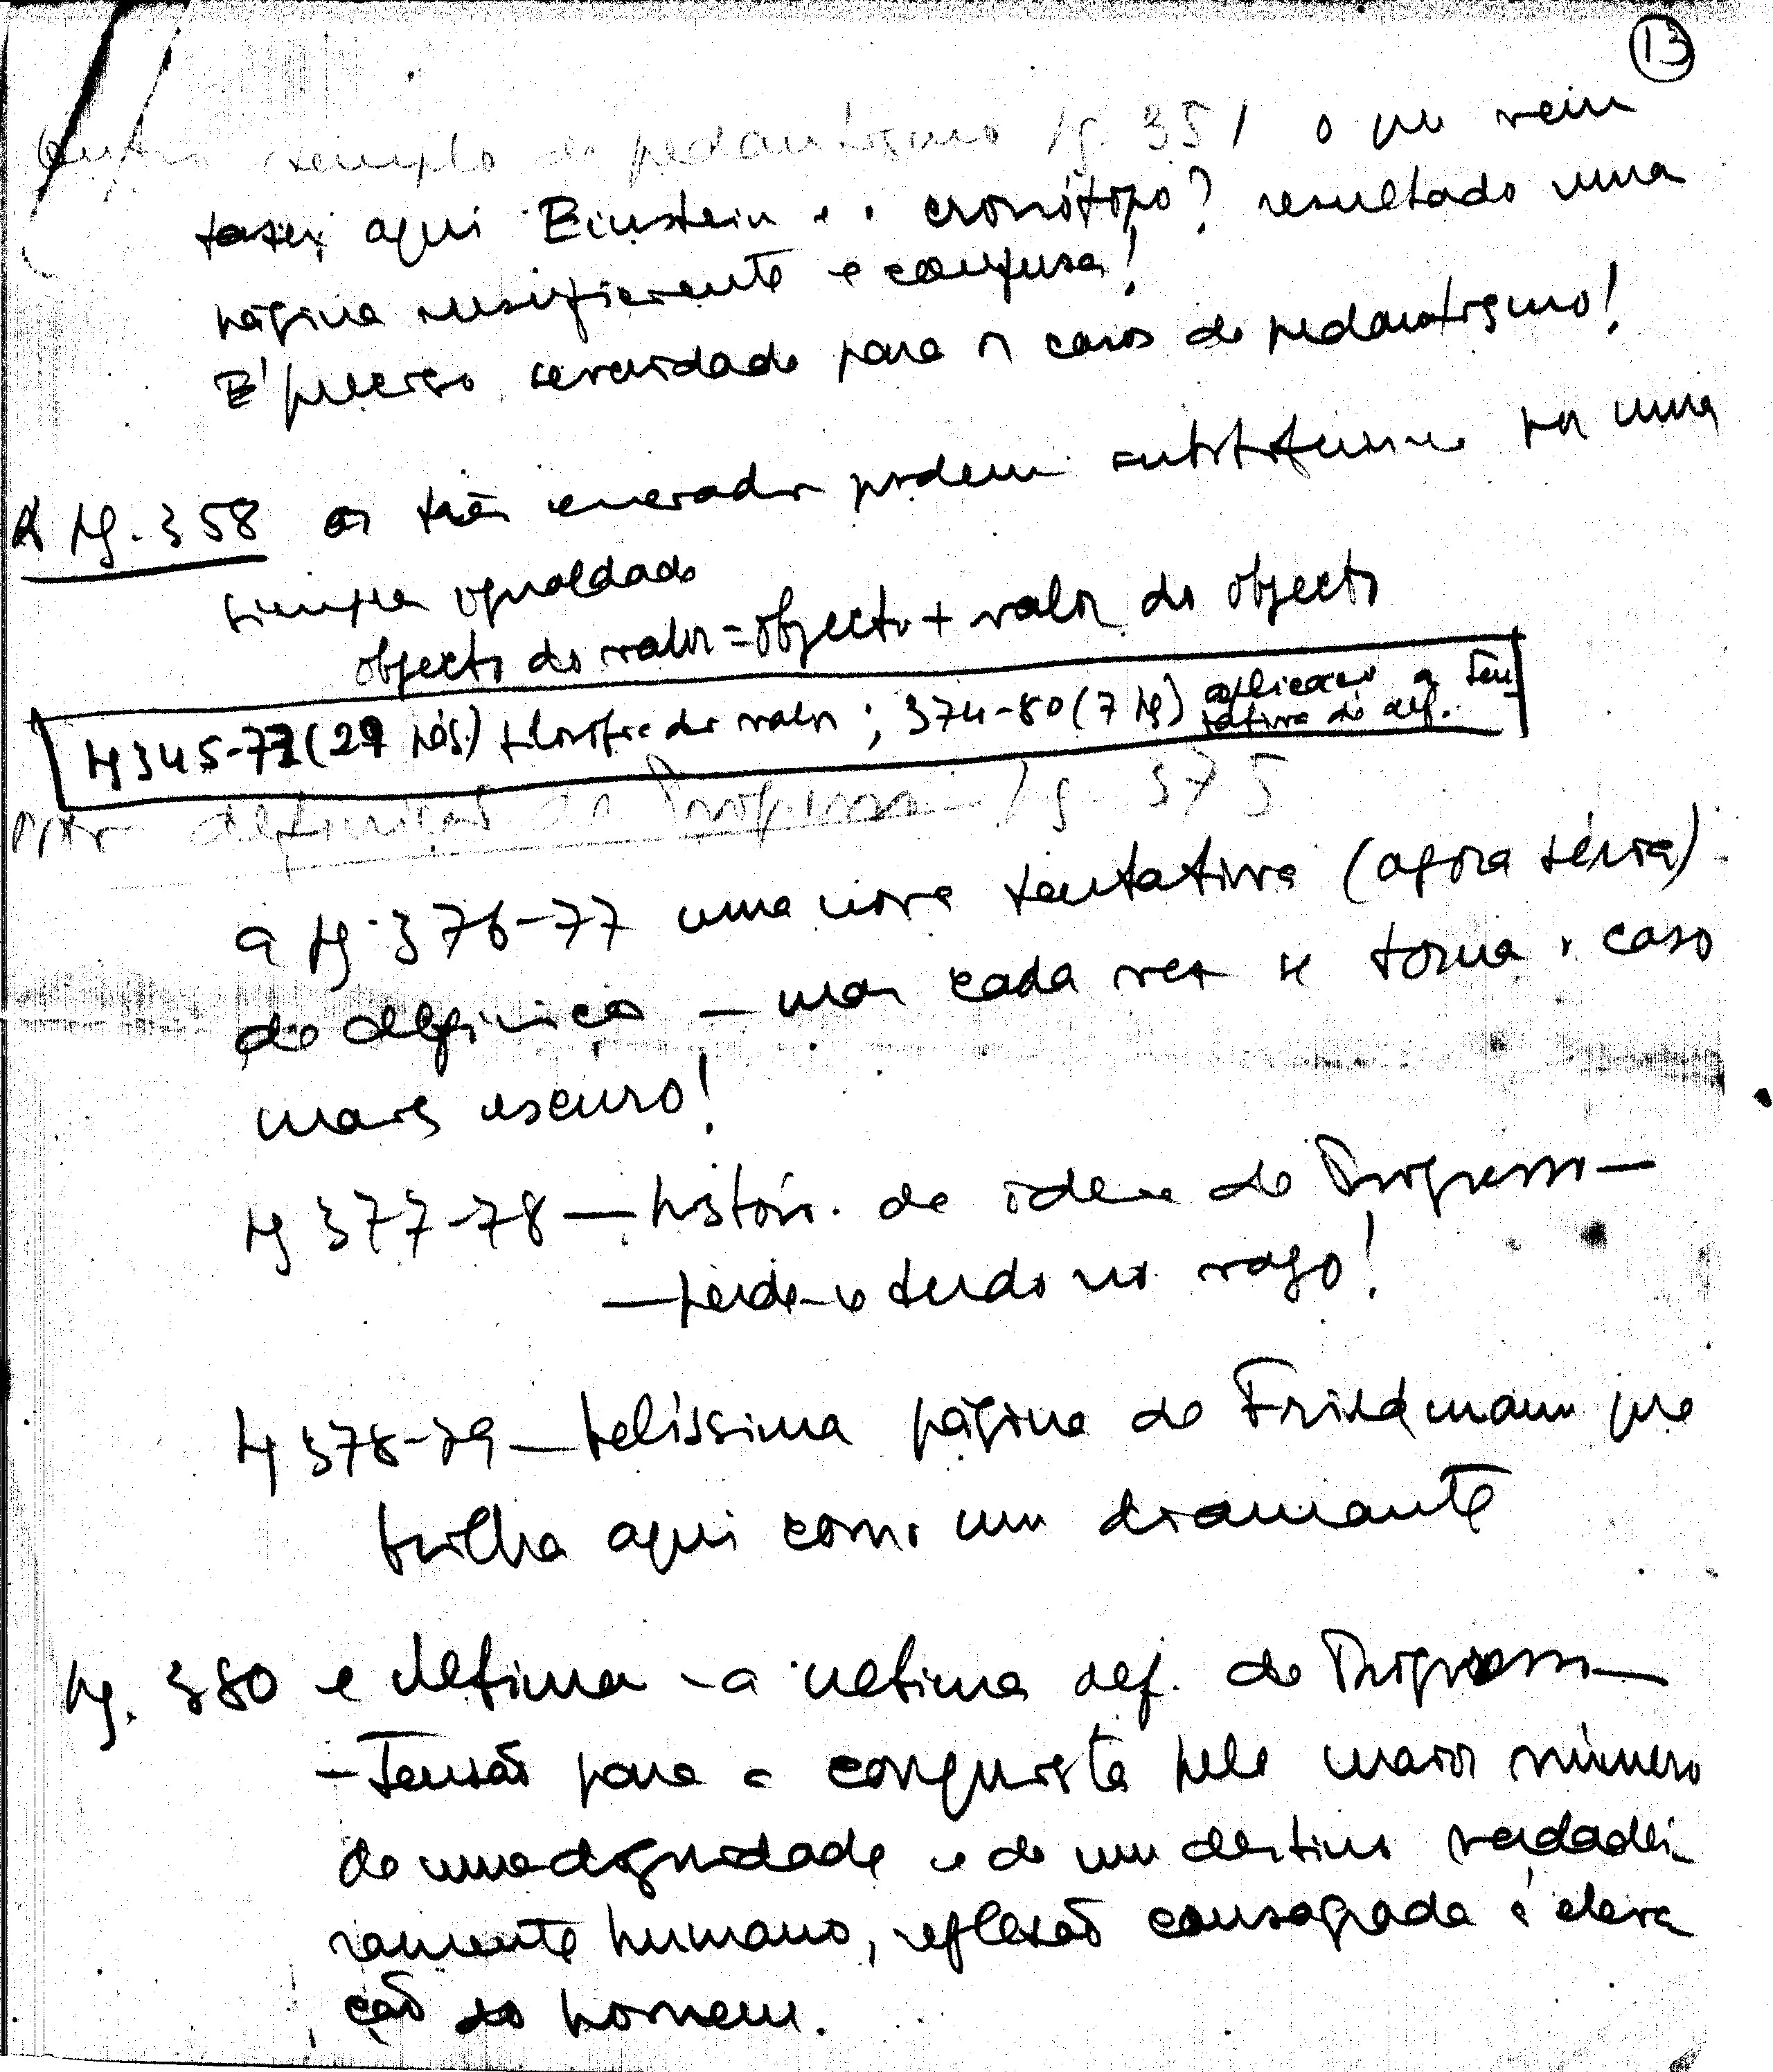 13
exemplo de pedantismo pg. 351 o que vem
fazer aqui Einstein e o cronótopo? resultado uma
página insuficiente e confusa!
E' preciso serenidade para os casos de pedantismo!
A pg. 358 os três enerados podem substituir-se por uma
simples igualdade
objecto do valor = objecto + valor do objecto
pg 345-72 (29 pág.) filosofia do valor; 374-80 (7 pg) aplicação a ten
tativa de def.
definição de Progresso — pg. 375
a pg. 376-77 uma nova tentativa (agora séria)
de definição — mas cada vez se torna o caso
mais escuro!
pg 377-78 — histór. da ideia de Progresso —
— perde-se tudo no vago!
pg 378-79 — belíssima página de Friedmann que
brilha aqui como um diamante
pg. 380 e última — a última def. de Progresso —
— Tensão para a conquista pelo maior número
de uma dignidade e de um destino verdadei-
ramente humano, reflexão consagrada à eleva
ção do homem.